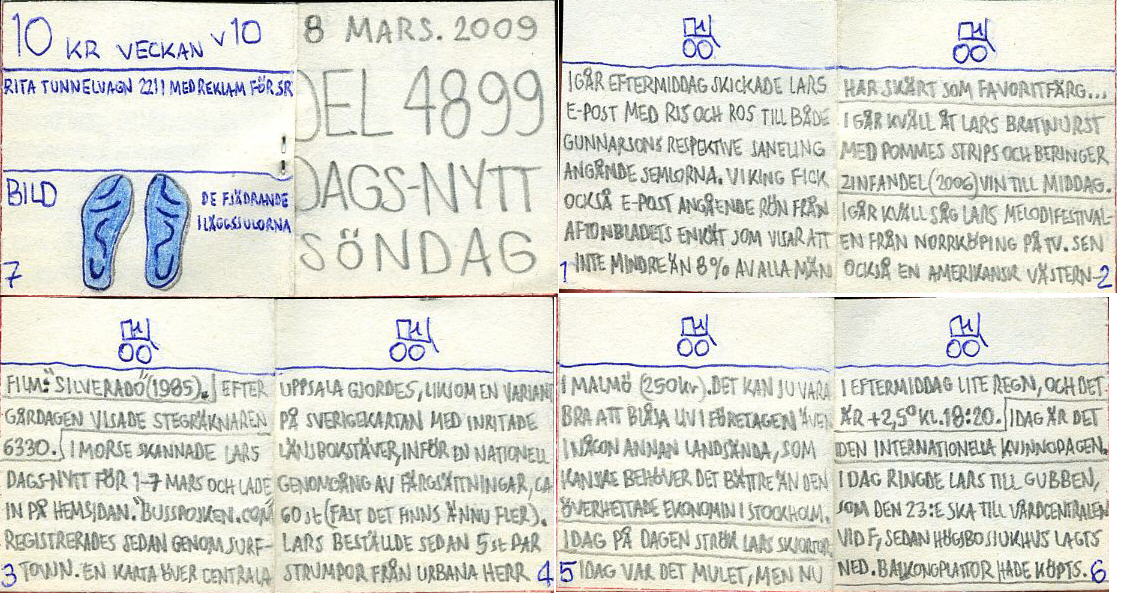 10 KR VECKAN V10
RITA TUNNELVAGN 2211 MED REKLAM FÖR SR
BILD
DE FJÄDRANDE
ILÄGGSSULORNA
7
8 MARS. 2009
DEL 4899
DAGS-NYTT
SÖNDAG
IGÅR EFTERMIDDAG SKICKADE LARS
E-POST MED RIS OCH ROS TILL BÅDE
GUNNARSONS RESPEKTIVE SANELING
ANGÅENDE SEMLORNA. VIKING FICK
OCKSÅ E-POST ANGÅENDE RÖN FRÅN
AFTONBLADETS ENKÄT SOM VISAR ATT
1 INTE MINDRE ÄN 8% AV ALLA MÄN
HAR SKÄRT SOM FAVORITFÄRG...
IGÅR KVÄLL ÅT LARS BRATWURST
MED POMMES STRIPS OCH BERINGER
ZINFANDEL (2006) VIN TILL MIDDAG.
IGÅR KVÄLL SÅG LARS MELODIFESTIVAL-
EN FRÅN NORRKÖPING PÅ TV. SEN
OCKSÅ EN AMERIKANSK VÄSTERN- 2
FILM: "SILVERADO" (1985). EFTER
GÅRDAGEN VISADE STEGRÄKNAREN
6330. I MORSE SKANNADE LARS
DAGS-NYTT FÖR 1-7 MARS OCH LADE
IN PÅ HEMSIDAN. "BUSSPOJKEN.COM"
REGISTRERADES SEDAN GENOM SURF-
3 TOWN. EN KARTA ÖVER CENTRALA
UPPSALA GJORDES, LIKSOM EN VARIANT
PÅ SVERIGEKARTAN MED INRITADE
LÄNSBOKSTÄVER, INFÖR EN NATIONELL
GENOMGÅNG AV FÄRGSÄTTNINGAR, CA
60 st (FAST DET FINNS ÄNNU FLER).
LARS BESTÄLLDE SEDAN 5 st PAR
STRUMPOR FRÅN URBANA HERR 4
I MALMÖ (250kr). DET KAN JU VARA
BRA ATT BLÅSA LIV I FÖRETAGEN ÄVEN
I NÅGON ANNAN LANDSÄNDA, SOM
KANSKE BEHÖVER DET BÄTTRE ÄN DEN
ÖVERHETTADE EKONOMIN I STOCKHOLM.
IDAG PÅ DAGEN STRÖK LARS SKJORTOR.
5 IDAG VAR DET MULET, MEN NU
I EFTERMIDDAG LITE REGN, OCH DET
ÄR +2,5° KL.18:20. IDAG ÄR DET
DEN INTERNATIONELLA KVINNODAGEN.
IDAG RINGDE LARS TILL GUBBEN,
SOM DEN 23:E SKA TILL VÅRDCENTRALEN
VID F, SEDAN HÖGSBO SJUKHUS LAGTS
NED. BALKONGPLATTOR HADE KÖPTS. 6